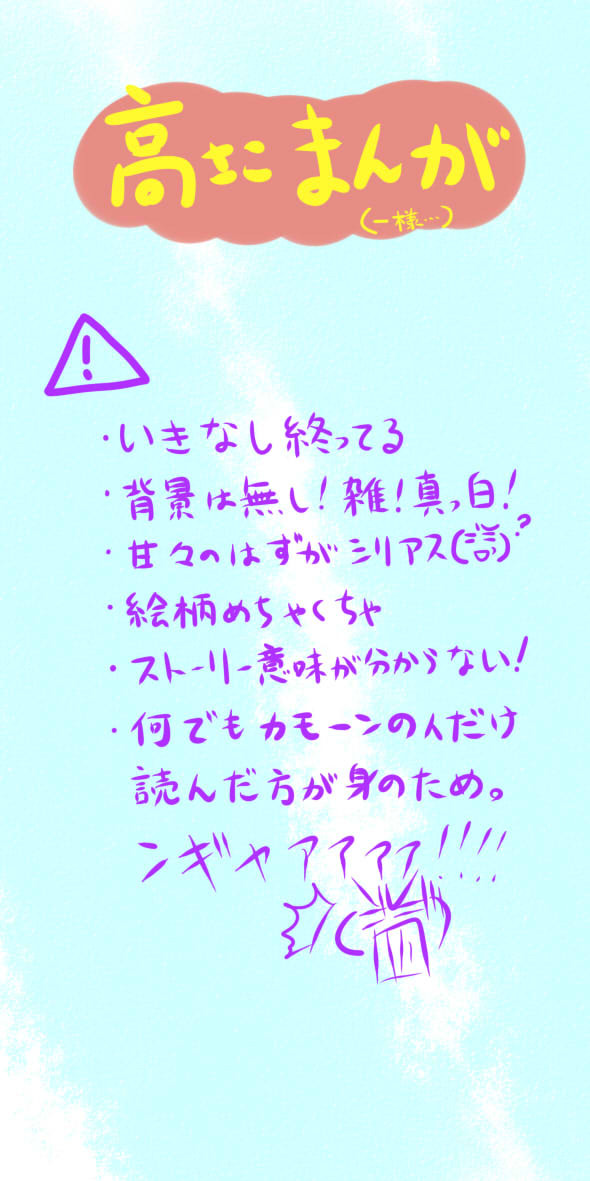 まんが
(一様…)
・いきなし終ってる
・背景は無し!雑!真っ白!
・甘々のはずがシリアス
・絵柄めちゃくちゃ
・ストーリー意味が分からない!
・何でもカモーンの人だけ
読んだ方が身のため。
ンギャァァァァ!!!!